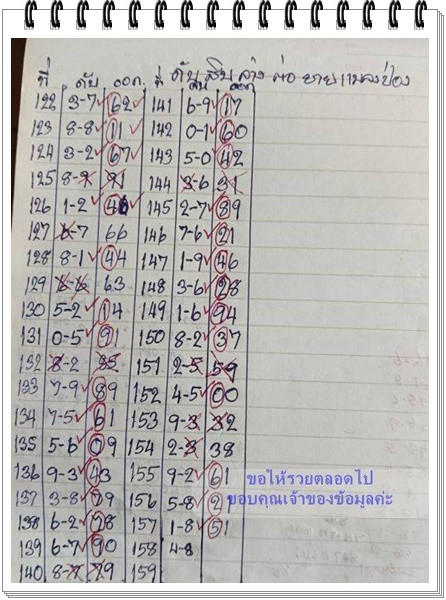 ที่ ดับ ออก. ที่ ดับ สิบ ล่าง พ่อ ยาย แมลงป่อง
122 3-7 62 141 6-9 17
123 8-8 11 142 0-1 60
124 3-2 67 143 5-0 42
125 8-9 91 144 3-6 31
126 1-2 46 145 2-7 89
127 6-7 66 146 7-6 21
128 8-1 44 147 1-9 46
129 63 148 3-6 28
130 5-2 14 149 1-6 94
131 0-5 91 150 8-2 37
132 8-2 85 151 2-5 59
133 7-9 89 152 4-5 00
134 7-5 61 153 9-3 32
135 5-6 09 154 2-3 38
136 9-3 43 155 9-2 61
137 3-8 79 156 5-8 21
138 6-2 28 157 1-8 51
139 6-7 90 158 4-8
140 8-7 79 159
ขอให้รวยตลอดไป
ขอบคุณเจ้าของข้อมูลค่ะ